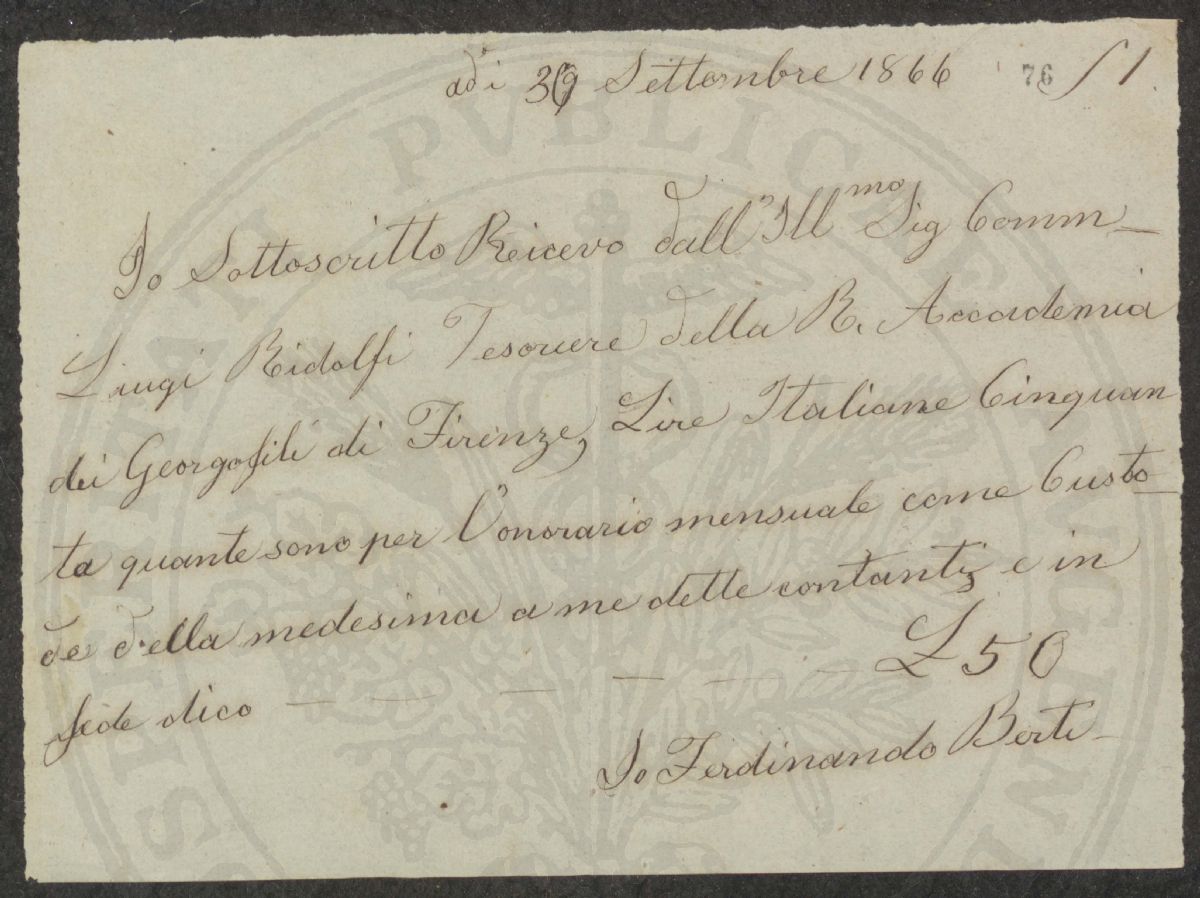 adi 30 Settembre 1866 76 51
Io Sottoscritto Ricevo dall'Ill.mo Sig Comm
Luigi Ridolfi Tesoriere della R. Accademia
dei Georgofili di Firenze, Lire Italiane Cinquan
ta quante sono per l'onorario mensuale come Custo
de della medesima a me dette contanti, e in
fede dico — — — — — — £ 50
Io Ferdinando Berti
PVBLICAE